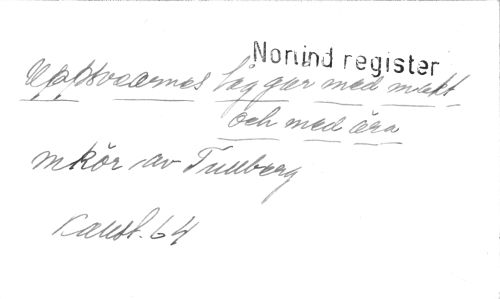 Norrind register
Uppsvearnes laggar med makt
och med ära
mkör av Tullberg
Kaps. 64